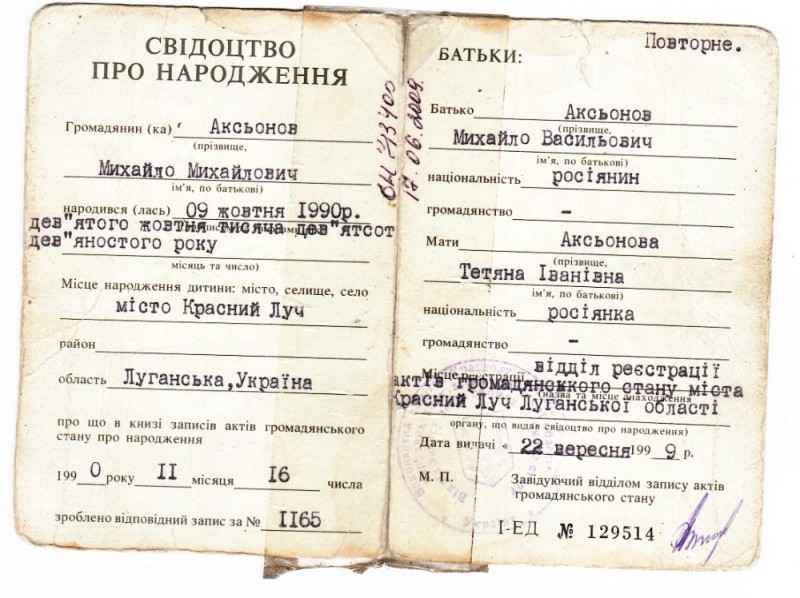 СВІДОЦТВО
ПРО НАРОДЖЕННЯ
Громадянин (ка) Аксьонов
(прізвище,
Михайло Михайлович
ім'я, по батькові)
народився (лась) 09 жовтня 1990р.
дев"ятого жовтня тисяча дев"ятсот
дев"яностого року
місяць та число)
Місце народження дитини: місто, селище, село
місто Красний Луч
район
область Луганська,Україна
про що в книзі записів актів громадянського
стану про народження
1990 року II місяця 16 числа
зроблено відповідний запис за № II65
17.06.2009.
Повторне.
БАТЬКИ:
Батько Аксьонов
(прізвище,
Михайло Васильович
ім'я, по батькові)
національність росіянин
громадянство –
Мати Аксьонова
(прізвище,
Тетяна Іванівна
ім'я, по батькові)
національність росіянка
громадянство –
Місце реєстрації відділ реєстрації
актів громадянського стану міста
(назва та місце знаходження
Красний Луч Луганської області
органу, що видав свідоцтво про народження)
Дата видачі « 22 вересня 1999 р.
М. П. Завідуючий відділом запису актів
громадянського стану
I-ЕД № 129514